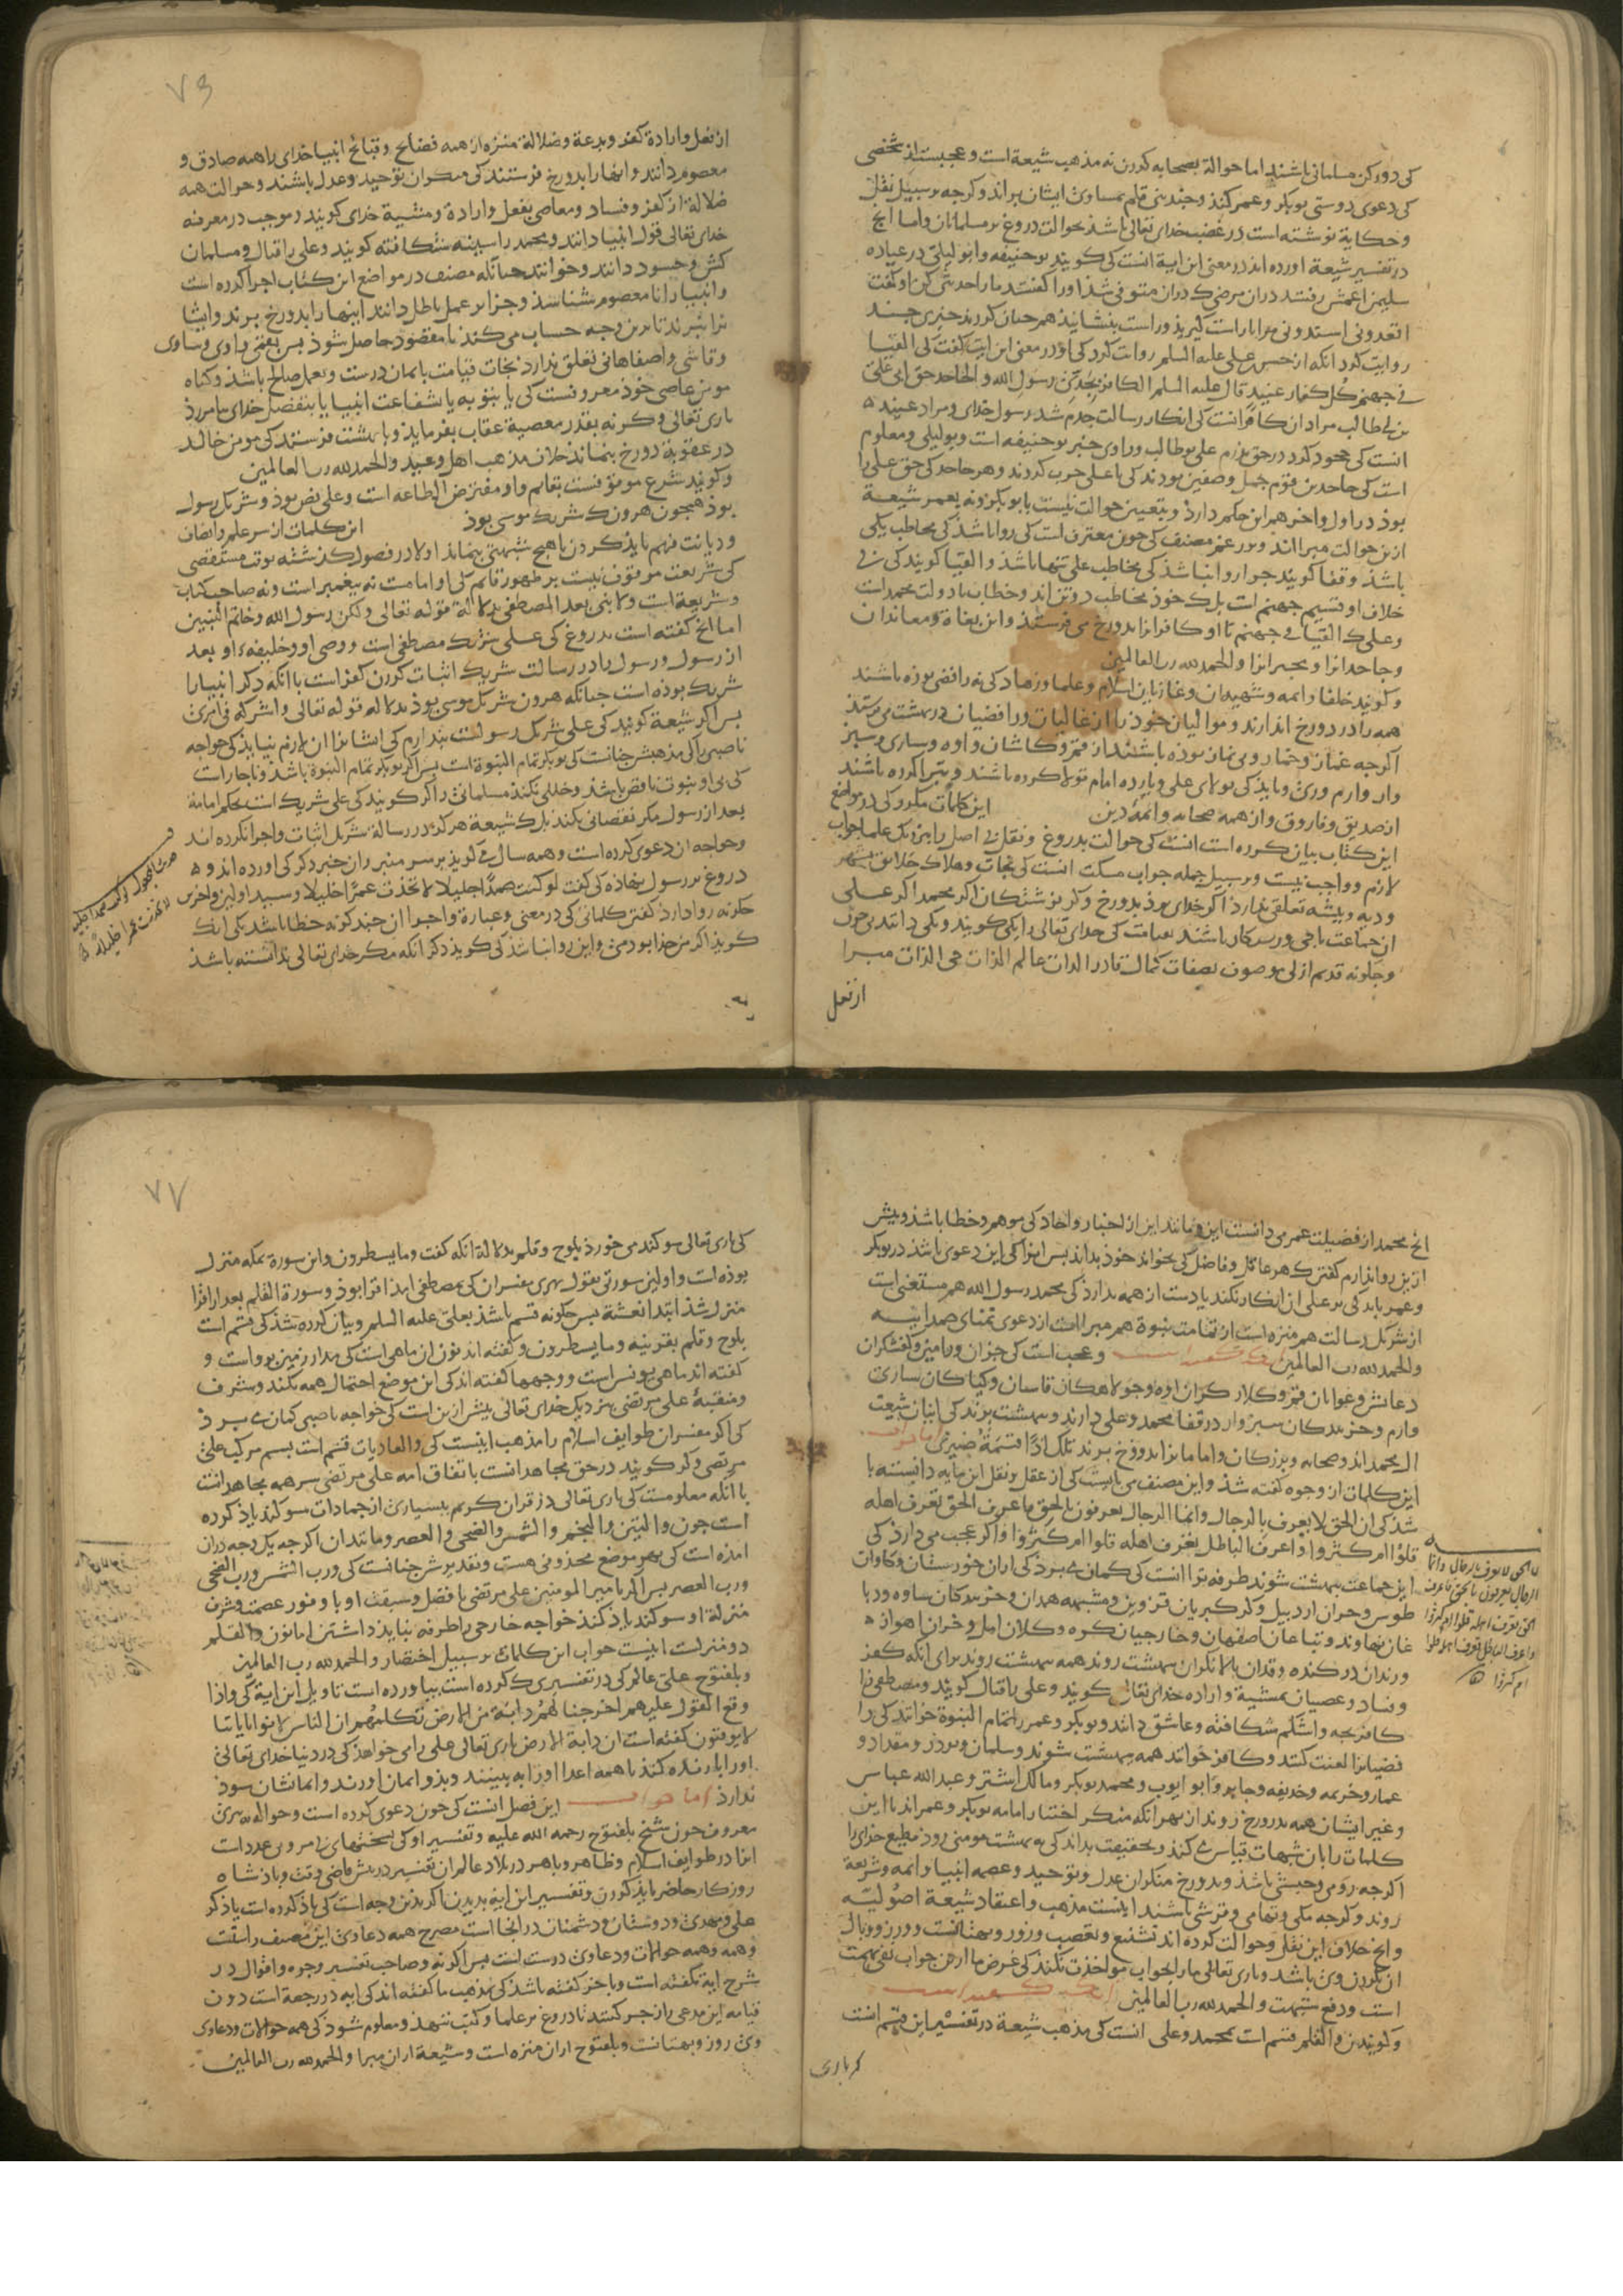 کی دور کن مسلمانی باشند اما حوالة بصحابه کردن نه مذهب شیعة است و عجبست از شخصی
کی دعوی دوستی بوبکر و عمر کند و چندینی قلم بمساوی ایشان براند و کرچه بر سبیل نقل
و حکایة نوشته است در غضب خدای تعالی باشد بحوالت دروغ بر مسلمانان و اما انچ
در تفسیر شیعة اورده اند در معنی این ایة انست کی کویند بو حنیفه و ابو لیلی در عیاده
سلیمن اعمش رفتند دران مرضی ک دران متوفی شد او را کفتند ما را حدیثی کن او کفت
اقعدونی اسندونی مرا باز است کیرید و راست بنشانید همچنان کردند خبری چند
روایت کرد انکه از حسن علی علیه السلم روایت کرد کی او در معنی این ایت کفت کی القیا
فی جهنم کل کفار عنید قال علیه السلم الکافر بجدی رسول الله و الجاحد حق ابی علی
بن ابی طالب مراد ان کافر انست کی انکار رسالت جدم شد رسول خدای و مراد عنید
انست کی جحود کرد در حق پدرم علی بو طالب و راوی خبر بو حنیفه است و بو لیلی و معلوم
است کی جاحدین قوم جمل و صفین بودند کی با علی حرب کردند و هر جاحد کی حق علی را
بود در اول و اخر هم این حکم دارد و بتعیین حوالت نیست بابو بکر و نه بعمر شیعة
ازین حوالت مبرا اند و بر زعم مصنف کی چون معترف است کی روا باشد کی مخاطب یکی
باشد و قفا کویند چرا روا نباشد کی مخاطب علی تنها باشد و القیا کویند کی نه
خلاف او قسیم جهنم است بلک خود مخاطب دو تن اند و خطاب با دولت محمد است
و علی ک القیا فی جهنم تا او کافرانرا بدوزخ می فرستد و این بغاة و معاندان
و جاحدانرا و مجبرانرا و الحمد لله رب العالمین
و کویند خلفا و ائمه و شهیدان و غازیان اسلام و علما و زهاد کی نه رافضی بوده باشند
همه را در دوزخ اندازند و موالیان خود را از غالیان و رافضیان در بهشت می فرستند
اکرچه غماز و خمار و بی نماز بوده باشند از قم و کاشان و اوه و ساری و سبز
وار و ارم و ری و باید کی تولای علی و یازده امام تولا کرده باشند و تبرا کرده باشند
از صدیق و فاروق و از همه صحابه و ائمهٔ دین این کلمات مکرر کی در مواضع
این کتاب بیان کرده است انست کی حوالت بدروغ و نقل بی اصل را بنزدیک علما جواب
لازم و واجب نیست و بر سبیل جمله جواب مسکت انست کی نجات و هلاک خلایق بشهر
و دیه و پیشه تعلقی ندارد اکر خدای برد بدوزخ و کر بر شنکان اکر محمد اکر علی
ان جماعت باجی و رستکار باشند بقیامت کی خدای تعالی را یکی کویند و یکی دانند بی چون
و چکونه قدیم ازلی موصوف بصفات کمال قادر الذات عالم الذات حی الذات مبرا
از فعل
۷۶
از فعل و ارادة کفر و بدعة و ضلالة منزه از همه فضایح و قبائح انبیا خدای را همه صادق و
معصوم دانند و انها را بدوزخ فرستند کی منکران توحید و عدل باشند و حوالت همه
ضلالة از کفر و فساد و معاصی بفعل و ارادة و مشیة خدای کویند و موجب در معرفه
خدای تعالی قول انبیا دانند و محمد را سینه شکافته کویند و علی را قتال و مسلمان
کش و حسود دانند و خوانند چنانکه مصنف در مواضع این کتاب اجرا کرده است
و انبیا را نا معصوم شناسند و جزا بر عمل باطل دانند اینها را بدوزخ برند و ایشا
نرا نبرند تا برین وجه حساب می کند تا مقصود حاصل شود پس بعضی راوی و ساوی
و قاشی و اصفاهانی تعلق ندارد نجات قیامت بایمان درست و بعمل صالح باشد و کناه
مومن عاصی خود معروفست کی یا بتوبه یا بشفاعت انبیا یا بتفضل خدای بیامرزد
باری تعالی و کر نه بقدر معصیة عقاب بفرماید و با بهشت فرستد کی مومن خالد
در عقوبة دوزخ بنماند خلاف مذهب اهل وعید و الحمد لله رب العالمین
و کویند شرع موقوفست بقایم و او مفترض الطاعه است و علی نص بود و شریک رسول
بود همچون هرون ک شریک موسی بود این کلمات از سر علم و انصاف
و دیانت فهم باید کردن تا هیچ شبهتی بنماند اولا در فصول کذشته بوقت مستقصی
کی شریعت موقوف نیست بر ظهور قایم کی او امامت نه پیغمبر است و نه صاحب کتاب
و شریعة است و لا نبی بعد المصطفی بدلالة قوله تعالی و لکن رسول الله و خاتم النبیین
اما انچ کفته است بدروغ کی علی شریک مصطفی است و وصی او و خلیفهٔ او بعد
از رسول و رسول را در رسالت شریک اثبات کردن کفر است با انکه دکر انبیا را
شریک بوده است چنانکه هرون شریک موسی بود بدلاله قوله تعالی و اشرکه فی امری
پس اکر شیعة کویند کی علی شریک رسولست پندارم کی ایشانرا ان لازم نیاید کی خواجه
ناصبی را کی مذهبش چنانست کی بوبکر تمام النبوة است پس اکر بوبکر تمام النبوة باشد و ناچار است
کی بی او نبوت ناقص باشد و خللی نکند مسلمانی را کر کویند کی علی شریک است بحکم امامة
بعد از رسول مکر نقصانی نکند بلک شیعة هرکز در رسالة شریک اثبات و اجرا نکرده اند
و خواجه ان دعوی کرده است و همه سال می کوید بر سر منبر و ان خبر دکر کی اورده اند و
دروغ بر رسول نهاده کی کفت لو کنت متخذا خلیلا لاتخذت عمرا خلیلا و سید اولین و اخرین
چکونه روا دارد کفتن کلماتی کی در معنی و عبارة واجبرا ان چند کونه خطا باشد یکی انک
کوید اکر من خدا بودمی و این روا نباشد کی کوید دکر انکه مکر خدای تعالی ندانسته باشد
انچ محمد از فضیلت عمر می دانست این و مانند این از اخبار واحاد کی موهم و خطا باشد و بیش
ازین روا ندارم کفتن ک هر عاقل و فاضل کی بخواند خود بداند پس انرا کی این دعوی باشد در بوبکر
و عمر باید کی بر علی ان انکار نکند یا دست از همه بدارد کی محمد رسول الله هم مستغنی است
از شریک رسالت هم منزه است از تمامت نبوة هم مبراست از دعوی تمنای همه انبیه
و الحمد لله رب العالمین و عجب است کی خران ورامین و کفشکران
دعایش و عوانان قم و کلاه کران اوه و جولاهکان قاسان و کیا کان ساری
و ارم و خربندکان سبزوار در قفا محمد و علی دارند و ببهشت برند کی اینان شیعت
ال محمد اند و صحابه و بزرکان و امامانرا بدوزخ برند تلک اذا قسمة ضیزی اما جواب
این کلمات از وجوه کفته شد و این مصنف می بایست کی از عقل و نقل این مایه دانسته با
شد کی ان الحق لا یعرف بالرجال و انما الرجال یعرفون بالحق فاعرف الحق تعرف اهله
قلوا ام کثروا و اعرف الباطل تعرف اهله قلوا ام کثروا و اکر عجب می دارد کی
این جماعت ببهشت شوند طرفه ترا انست کی کمان می برد کی اران خورستان و کاوان
طوس و خران اردبیل و کر کبریان قزوین و مشبهه همدان و خربندکان ساوه و دبا
غان نهاوند و تباعان اصفهان و خارجیان کره و کلان امل و خران اهواز
و رندان در کنده و قدان بالا نکران ببهشت روند همه ببهشت روند برای انکه کفر
و فساد و عصیان بمشیة و اراده خدای تعالی کویند و علی را قتال کویند و مصطفی را
کافر بچه و اشکم شکافته و عاشق دانند و بوبکر و عمر را تمام النبوة خوانند کی را
فضیانرا لعنت کنند و کافر خوانند همه ببهشت شوند و سلمان و بوذر و مقداد و
عمار و خزیمه و حذیفه و جابر و ابو ایوب و محمد بوبکر و مالک اشتر و عبد الله عباس
و غیر ایشان همه بدوزخ روند از بهر انکه منکر اختیار امامه بوبکر و عمر اند با این
کلمات را بان شبهات قیاس می کند و بحقیقت بداند کی به بهشت مومنی رود مطیع خدای را
اکرچه رومی و حبشی باشد و بدوزخ منکران عدل و توحید و عصمه انبیا و ائمه و شریعة
روند و کرچه مکی و تهامی و قرشی باشند اینست مذهب و اعتقاد شیعة اصولیّه
و انچ خلاف این نقل و حوالت کرده اند تشنیع و تعصب و زور و بهتانست و وزر و وبال
ان بکردن وی باشد و باری تعالی ما را بجواب مواخذت نکند کی غرض ما ازین جواب نفی تهمت
است و دفع شبهت و الحمد لله رب العالمین
و کویند ن و القلم قسم است بمحمد و علی انست کی مذهب شیعة در تفسیر این قسم انست
کی باری
ان الحق لا یعرف بالرجال و انما
الرجال یعرفون بالحق فاعرف
الحق تعرف اهله قلوا ام کثروا
و اعرف الباطل تعرف اهله قلوا
ام کثروا
۷۷
کی باری تعالی سوکند می خورد بلوح و قلم بدلالة انکه کفت و ما یسطرون و این سورة بمکه منزل
بوده است و اولین سورتی بقول بهری مفسران کی بمصطفی امد اقرا بود و سورة القلم بعد از اقرا
منزل شد ابتدا نعشة پس چکونه قسم باشد بعلی علیه السلم و بیان کرده شد کی قسم است
بلوح و قلم بقرینه و ما یسطرون و کفته اند نون ان ماهی است کی مدار زمین برو است و
کفته اند ماهی یونس است و وجهها کفته اند کی این موضع احتمال همه نکند و شرف
و منقبة علی مرتضی بنزدیک خدای تعالی بیش ازین است کی خواجه ناصبی کمان می برد
کی اکر مفسران طوایف اسلام را مذهب اینست کی و العادیات قسم است بسم مرکب علی
مرتضی و کر کویند در حق مجاهدانست باتفاق امه علی مرتضی سر همه مجاهدانست
با انکه معلومست کی باری تعالی در قران کریم بسیاری از جمادات سوکند یاذ کرده
است چون و التین و النجم و الشمس و الضحی و العصر و مانند ان اکرچه یک وجه دران
امده است کی بهر موضع محذوفی هست و تقدیرش چنانست کی و رب الشمس و رب الضحی
و رب العصر پس اکر بامیر المومنین علی مرتضی با فضل و سبقت او با وفور عصمت و شرف
منزلة او سوکند یاذ کند خواجه خارجی را طرفه نباید داشتن اما نون و القلم
دو منزلت اینست جواب این کلمات بر سبیل اختصار و الحمد لله رب العالمین
و بلفتوح علی عالم کی در تفسیری ک کرده است بیاورده است تاویل این ایة کی و اذا
وقع القول علیهم اخرجنا لهم دابة من الارض تکلمهم ان الناس کانوا بایاتنا
لا یوقنون کفته است ان دابة الارض باری تعالی علی را می خواهد کی در دنیا خدای تعالی
او را با زنده کند با همه اعدا او را به بینند و بدو ایمان اورند و ایمانشان سود
ندارد اما جواب این فصل انست کی چون دعوی کرده است و حواله بمردی
معروف چون شیخ بلفتوح رحمة الله علیه و تفسیر او کی نسختهای بی مر و بی عدد است
انرا در طوایف اسلام و ظاهر و باهر در بلاد عالم ان تفسیر در پیش قاضی وقت و پادشاه
روزکار حاضر باید کردن و تفسیر این ایة بدیدن اکر بدین وجه است کی یاد کرده است یاذ کر
علی و مهدی و دوستان و دشمنان در انجا است مصرح همه دعاوی این مصنف راست
و همه و همه حوالات و دعاوی درست است پس اکر نه و صاحب تفسیر وجوه و اقوال در
شرح ایة بکفته است و باخر کفته باشد کی بمذهب ما کفته اند کی ایه در رجعة است دون
قیامه این مدعی را زجر کنند تا دروغ بر علما و کتب ننهد و معلوم شود کی همه حوالات و دعاوی
وی زور و بهتانست و بلفتوح ازان منزه است و شیعة ازان مبرا و الحمد لله رب العالمین